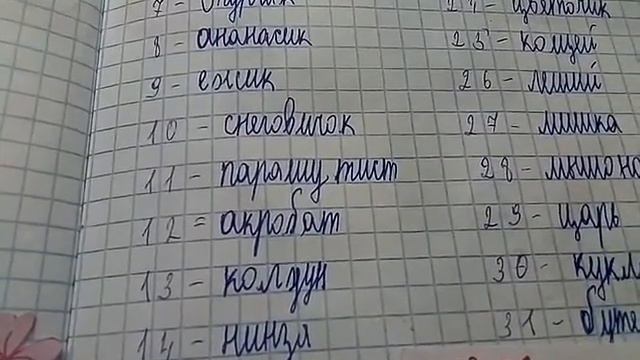 8 - ананасик
9 - ежик
10 - снеговичок
11 - парашутист
12 = акробат
13 - колдун
14 - нинзя
24 - цветочик
25 - кощей
26 - леший
27 - мишка
28 -
29 - царь
30 -
31 -